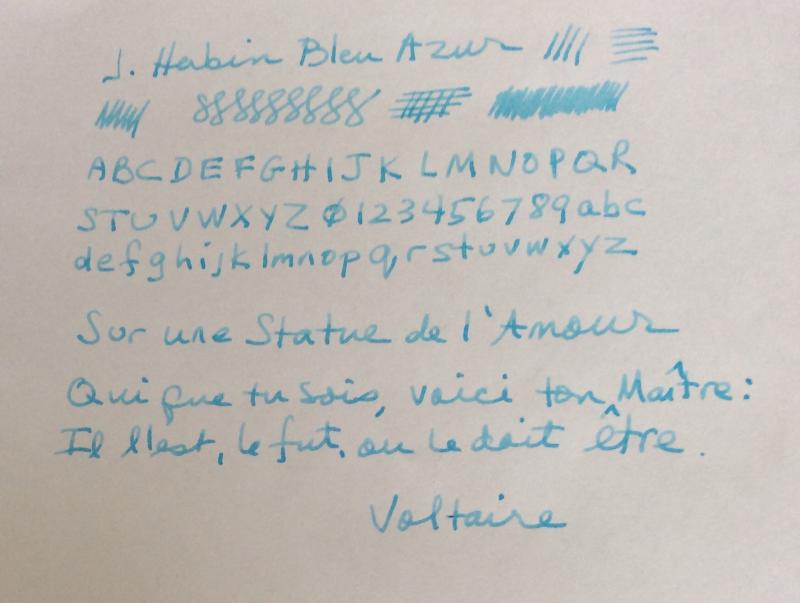 J. Herbin Bleu Azur
ABCDEFGHIJKLMNOPQR
STUVWXYZ Ø123456789abc
defghijklmnopqrstuvwxyz
Sur une Statue de l'Amour
Qui que tu sois, voici ton Maître:
Il l'est, le fut, ou le doit être.
Voltaire